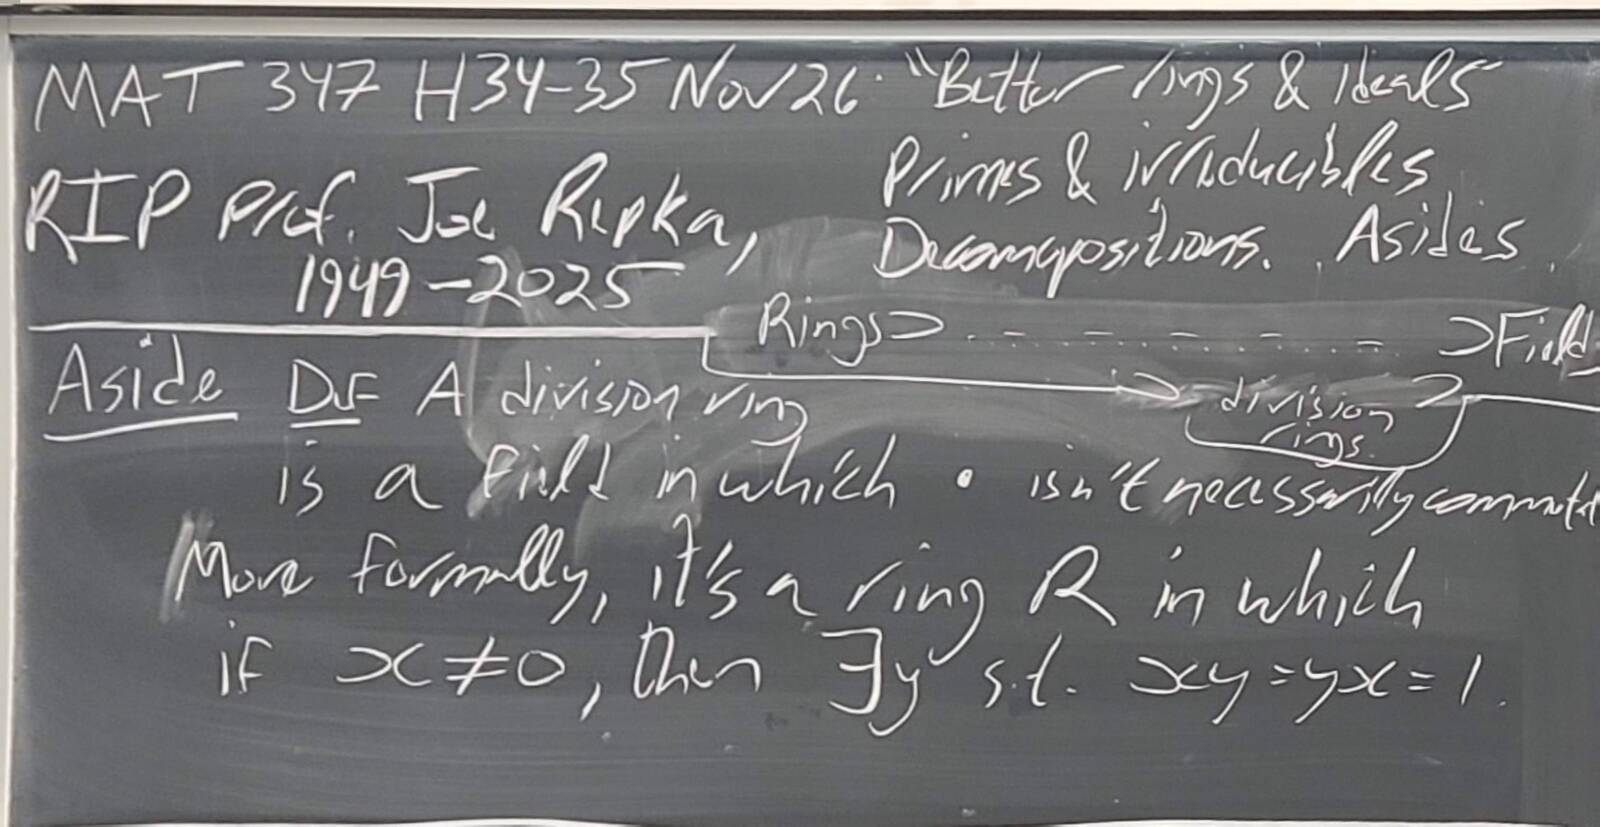 MAT 347 H34-35 Nov 26. "Better rings & ideals"
Primes & irreducibles
Decomapositions. Asides.
RIP Prof. Joe Repka,
1949-2025
Rings ⊃ ............ ⊃ Fields
⊃ division ⊃
rings.
Aside Def A division ring
is a field in which • isn't necessarily
More formally, it's a ring R in which
if x≠0, then ∃y s.t. xy=yx=1.